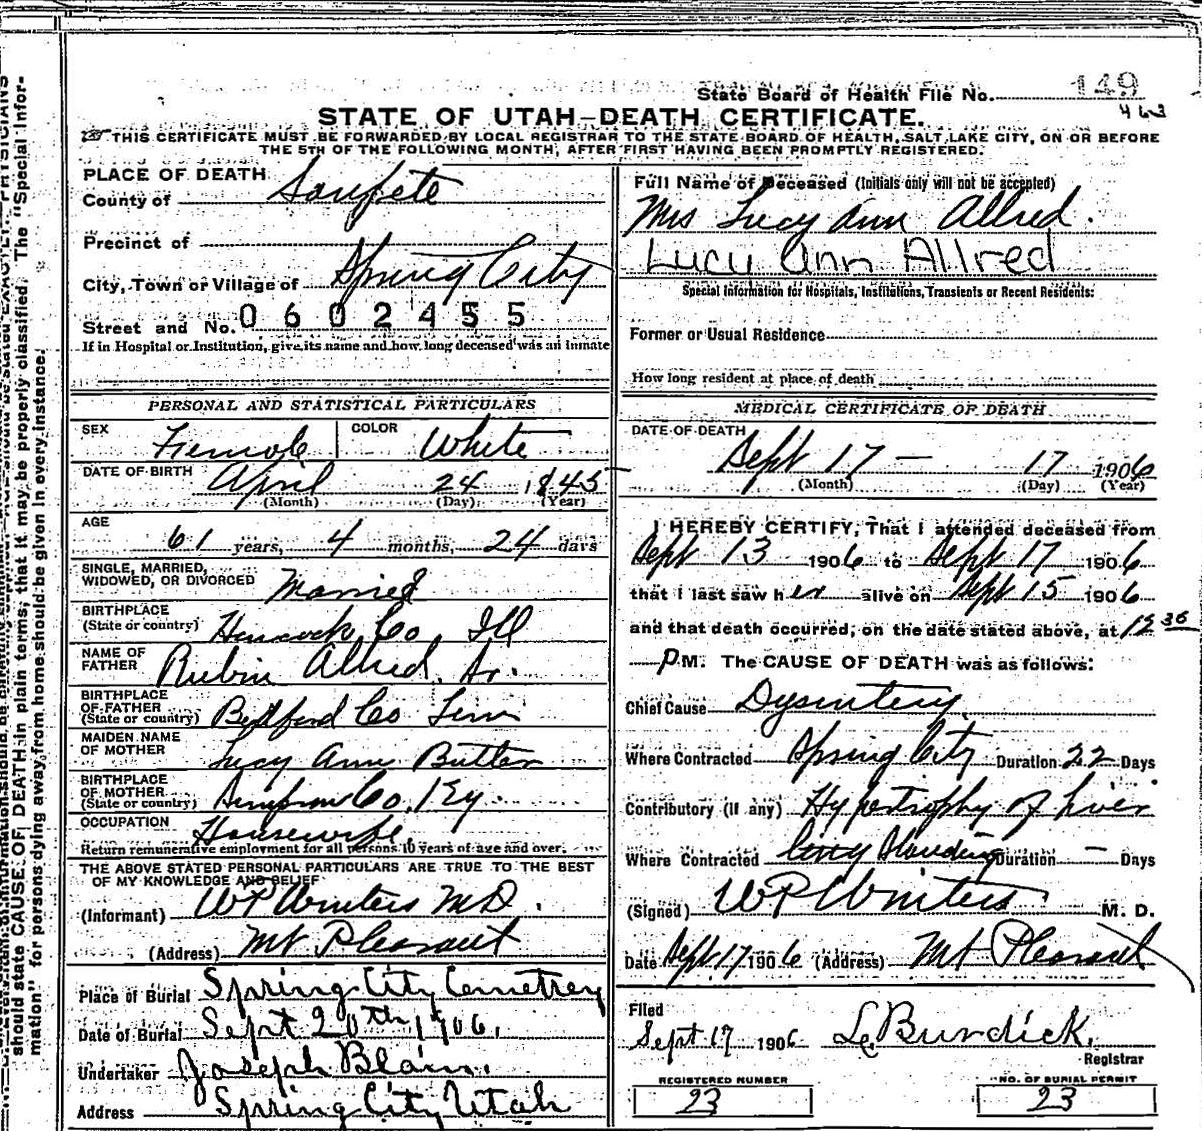 State Board of Health File No. 149
463
STATE OF UTAH—DEATH CERTIFICATE.
THIS CERTIFICATE MUST BE FORWARDED BY LOCAL REGISTRAR TO THE STATE BOARD OF HEALTH, SALT LAKE CITY, ON OR BEFORE
THE 5TH OF THE FOLLOWING MONTH, AFTER FIRST HAVING BEEN PROMPTLY REGISTERED.
PLACE OF DEATH
County of Sanpete
Precinct of
City, Town or Village of Spring City
Street and No. 0602455
If in Hospital or Institution, give its name and how long deceased was an inmate
PERSONAL AND STATISTICAL PARTICULARS
SEX Female COLOR White
DATE OF BIRTH April 24 1845
(Month) (Day) (Year)
AGE
61 years, 4 months, 24 days
SINGLE, MARRIED,
WIDOWED, OR DIVORCED Married
BIRTHPLACE
(State or country) Hancock Co, Ill
NAME OF
FATHER Rubin Allred. Sr.
BIRTHPLACE
OF FATHER
(State or country) Bedford Co Tenn
MAIDEN NAME
OF MOTHER Lucy Ann Butler
BIRTHPLACE
OF MOTHER
(State or country) Simpson Co. Ky.
OCCUPATION Housewife
Return remunerative employment for all persons 10 years of age and over.
THE ABOVE STATED PERSONAL PARTICULARS ARE TRUE TO THE BEST
OF MY KNOWLEDGE AND BELIEF
(Informant) WP Winters MD.
(Address) Mt Pleasant
Place of Burial Spring City Cemetrey
Date of Burial Sept 20th 1906.
Undertaker Joseph Blain.
Address Spring City Utah
Full Name of Deceased (Initials only will not be accepted)
Mrs Lucy Ann Allred.
Lucy Ann Allred
Special Information for Hospitals, Institutions, Transients or Recent Residents:
Former or Usual Residence
How long resident at place of death
MEDICAL CERTIFICATE OF DEATH
DATE OF DEATH
Sept 17 — 17 1906
(Month) (Day) (Year)
I HEREBY CERTIFY, That I attended deceased from
Sept 13 1906 to Sept 17 1906
that I last saw her alive on Sept 15 1906
and that death occurred, on the date stated above, at 12 30
P M. The CAUSE OF DEATH was as follows:
Chief Cause Dysintery
Where Contracted Spring City Duration 22 Days
Contributory (if any) Hypertrophy of Liver
Where Contracted Long Standing Duration — Days
(Signed) WP Winters M. D.
Date Sept 17 1906 (Address) Mt Pleasant
Filed
Sept 17 1906 Burdick.
Registrar
REGISTERED NUMBER
23
NO. OF BURIAL PERMIT
23
should state CAUSE OF DEATH in plain terms, that it may be properly classified. The "Special Infor-
mation" for persons dying away from home should be given in every instance.